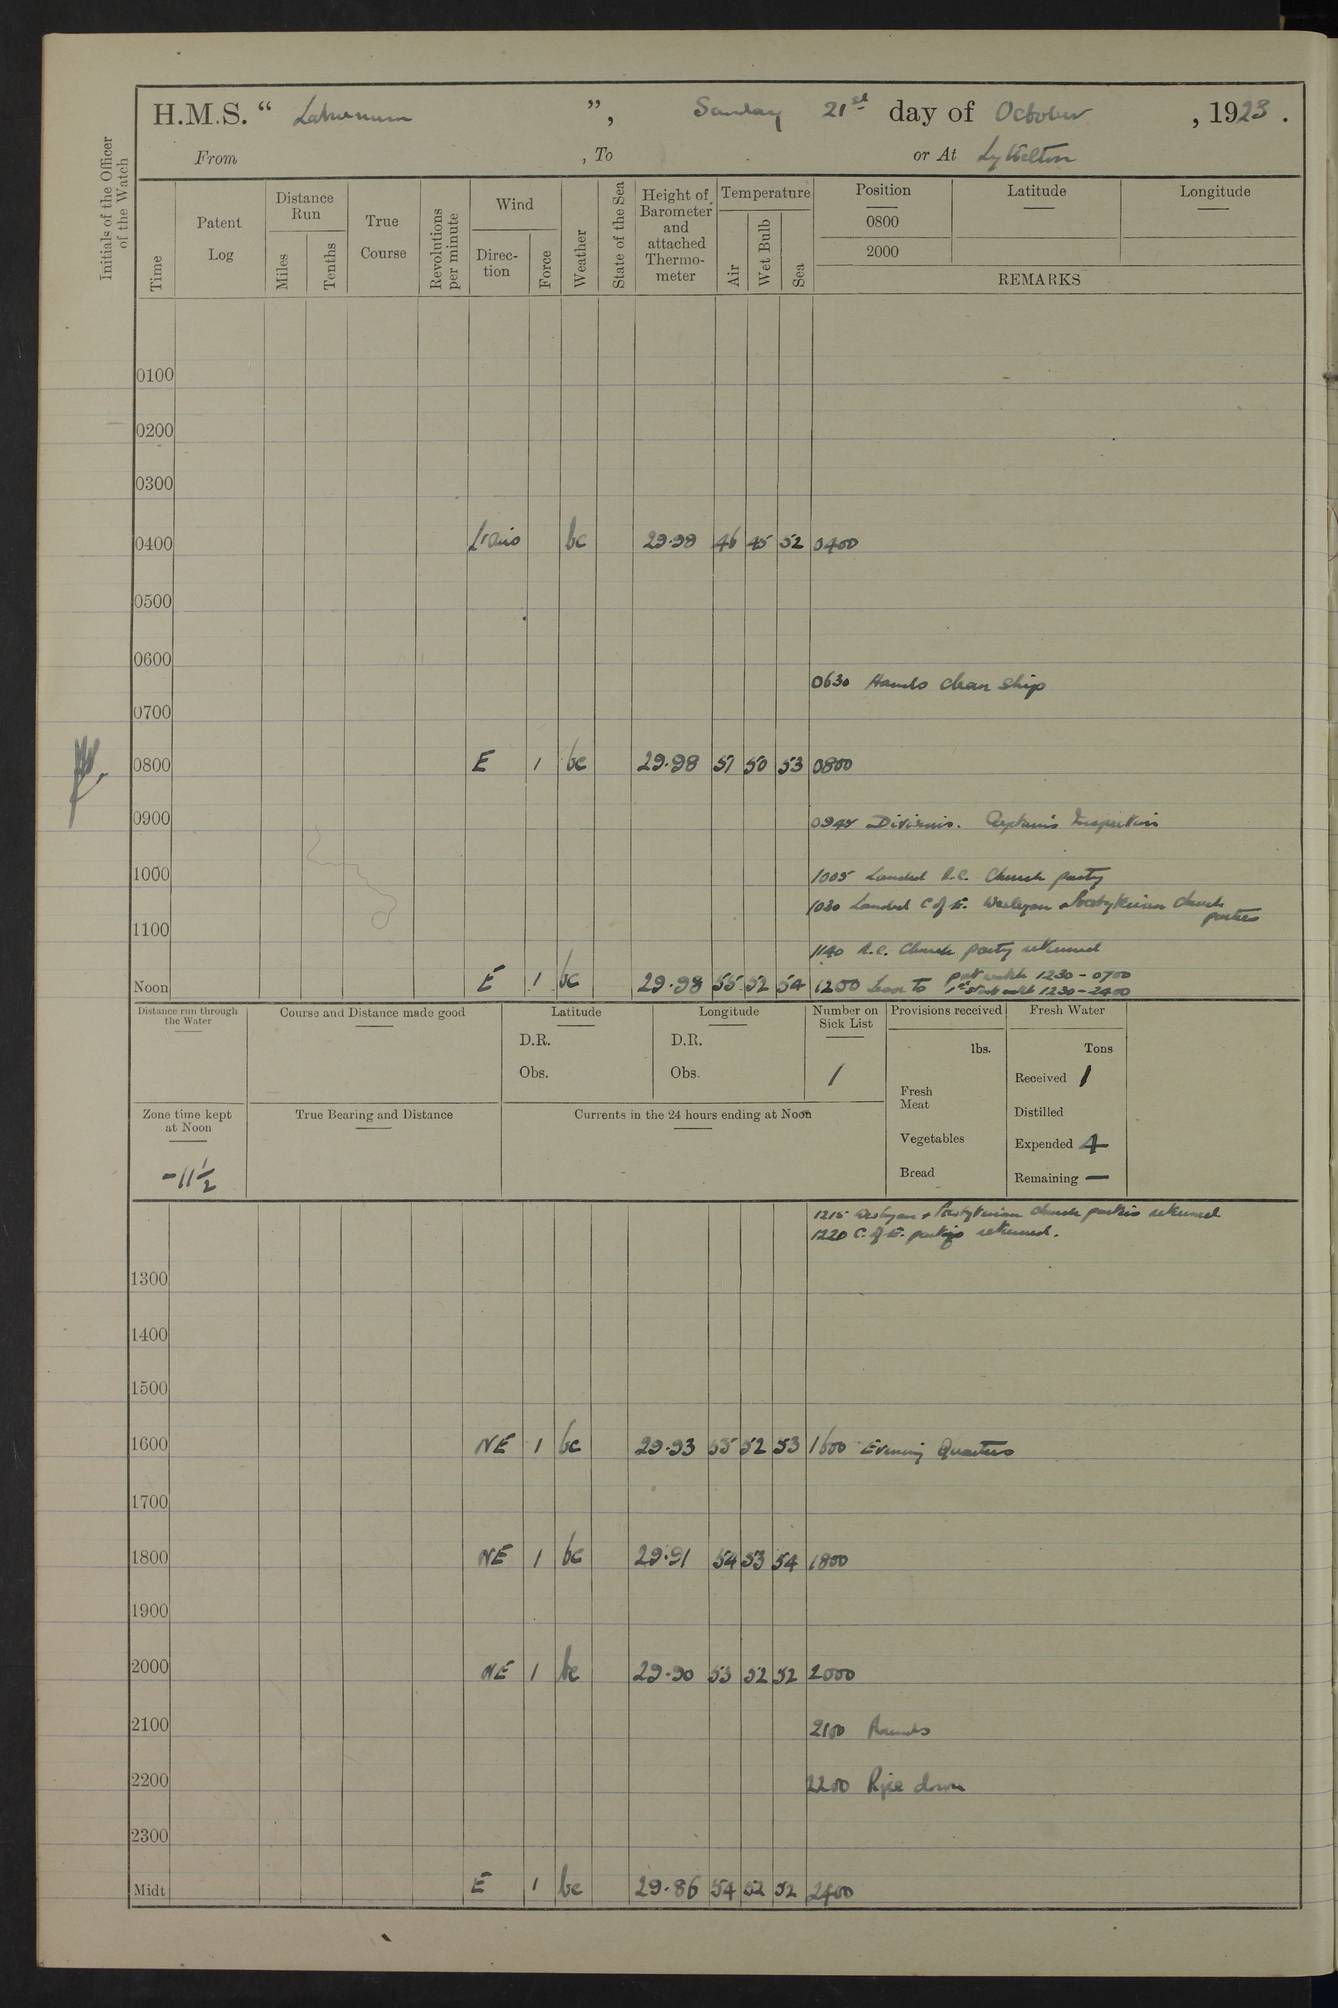 H.M.S. “ Laburnum ”, Sunday 21st day of October , 1923 .
From , To or At Lyttelton
Initials of the Officer of the Watch
Time
Patent Log
Distance Run
Miles
Tenths
True Course
Revolutions per minute
Wind
Direc-tion
Force
Weather
State of the Sea
Height of Barometer and attached Thermo-meter
Temperature
Air
Wet Bulb
Sea
Position Latitude Longitude
0800
2000
REMARKS
0100
0200
0300
0400 L'airs bc 29.98 46 45 52 0400
0500
0600
0630 Hands clean ship
0700
0800 E 1 bc 29.98 51 50 53 0800
0900
0945 Divisions. Captain's Inspection
1000
1005 Landed R.C. Church party
1030 Landed C of E. Wesleyan & Presbyterian Church
parties
1100
1140 R.C. Church party returned
Noon E 1 bc 29.98 55 52 54 1200 Leave to port watch 1230 - 0700
1st starb watch 1230 - 2400
Distance run through the Water
Course and Distance made good
Latitude
D.R.
Obs.
Longitude
D.R.
Obs.
Number on Sick List
1
Provisions received
lbs.
Fresh Meat
Vegetables
Bread
Fresh Water
Tons
Received 1
Distilled
Expended 4
Remaining —
Zone time kept at Noon
-11½
True Bearing and Distance
Currents in the 24 hours ending at Noon
1215 Wesleyan & Presbyterian Church parties returned
1220 C. of E. parties returned.
1300
1400
1500
1600 NE 1 bc 29.93 55 52 53 1600 Evening Quarters
1700
1800 NE 1 bc 29.91 54 53 54 1800
1900
2000 NE 1 bc 29.90 53 52 52 2000
2100
2100 Rounds
2200
2200 Pipe down
2300
Midt E 1 bc 29.86 54 52 52 2400